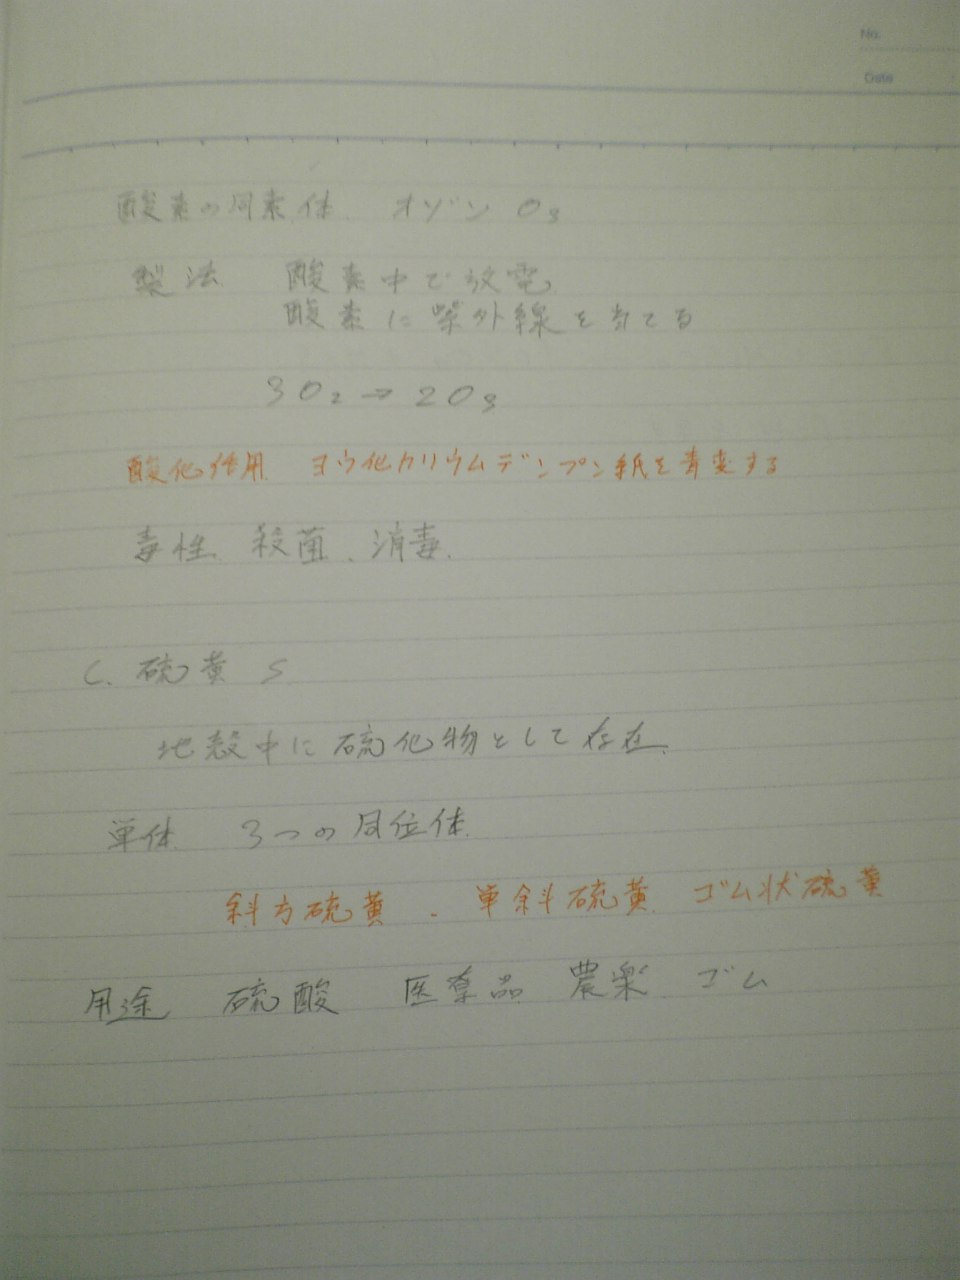 No.
Date
酸素の同素体 オゾン O3
製法 酸素中で放電
酸素に紫外線を当てる
3O2→2O3
酸化作用 ヨウ化カリウムデンプン紙を青変する
毒性、殺菌、消毒、
C. 硫黄 S
地殻中に硫化物として存在
単体 3つの同位体
斜方硫黄、単斜硫黄、ゴム状硫黄
用途 硫酸 医薬品 農薬 ゴム